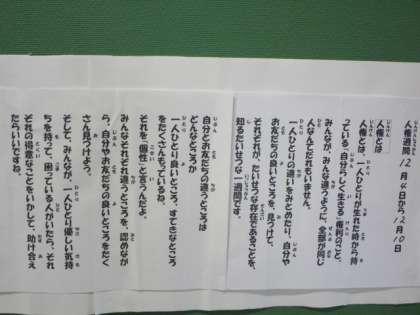 人権週間 12月4日から12月10日
人権とは
人権とは、一人ひとりが生れた時から持
っている「自分らしく生きる」権利のこと。
みんなが、みんな違うように、全部が同じ
人なんてだれもいません。
一人ひとりの違いをみとめたり、自分や
お友だちの良いところを、見つけて、
それぞれが、たいせつな存在であることを、
知るたいせつな一週間です。
自分とお友だちの違うところは
どんなところか
一人ひとり良いところ、すてきなところ
をたくさんもっているね。
それを、「個性」と言うんだよ。
みんなそれぞれ違うところを、認めなが
ら、自分やお友だちの良いところをたく
さん見つけよう。
そして、みんなが、一人ひとり優しい気持
ちを持って、困っている人がいたら、それ
ぞれの得意なことをいかして、助け合え
たらいいですね。